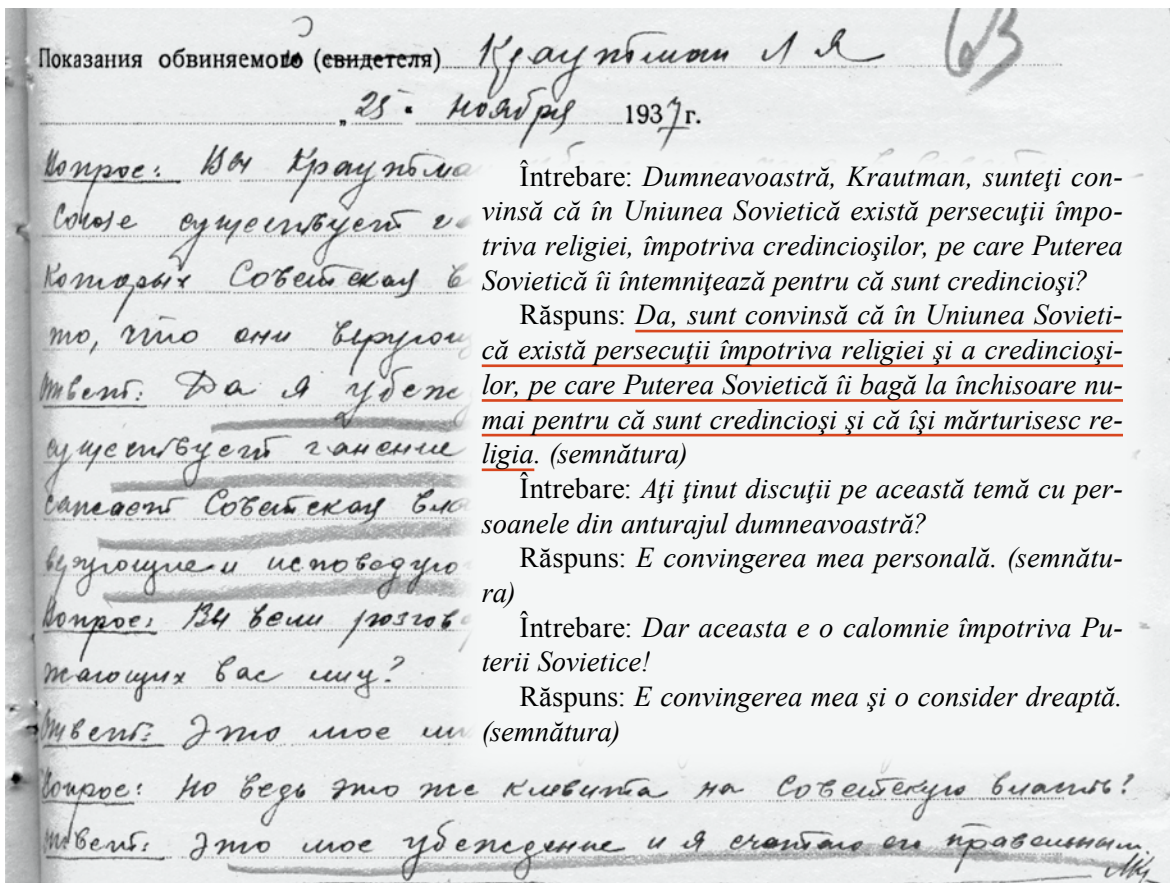 63
Показания обвиняемо (свидетеля) Краутман Л Я
„25" ноября 1937 г.
Вопрос: Вы Краутма
Союзе существует
Которых Советская в
то, что они верующ
Ответ: Да я убеж
существует ганение
сажает Советская вла
верующие и исповедую
Вопрос: Вы вели разгов
жающих вас лиц?
Ответ: Это мое
Вопрос: Но ведь это же клевита на Советскую власть?
Ответ: Это мое убеждение и я считаю ег правельным.
Întrebare: Dumneavoastră, Krautman, sunteţi con-
vinsă că în Uniunea Sovietică există persecuţii împo-
triva religiei, împotriva credincioşilor, pe care Puterea
Sovietică îi întemniţează pentru că sunt credincioşi?
Răspuns: Da, sunt convinsă că în Uniunea Sovieti-
că există persecuţii împotriva religiei şi a credincioşi-
lor, pe care Puterea Sovietică îi bagă la închisoare nu-
mai pentru că sunt credincioşi şi că îşi mărturisesc re-
ligia. (semnătura)
Întrebare: Aţi ţinut discuţii pe această temă cu per-
soanele din anturajul dumneavoastră?
Răspuns: E convingerea mea personală. (semnătu-
ra)
Întrebare: Dar aceasta e o calomnie împotriva Pu-
terii Sovietice!
Răspuns: E convingerea mea şi o consider dreaptă.
(semnătura)